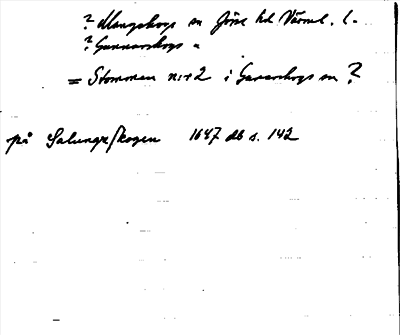 ? Mangskogs sn Jösse hd Värml. l.
? Gunnarskogs "
= Stommen nr 2 i Gunnarskogs sn ?
på Salungx/kogen 1647 db s. 142